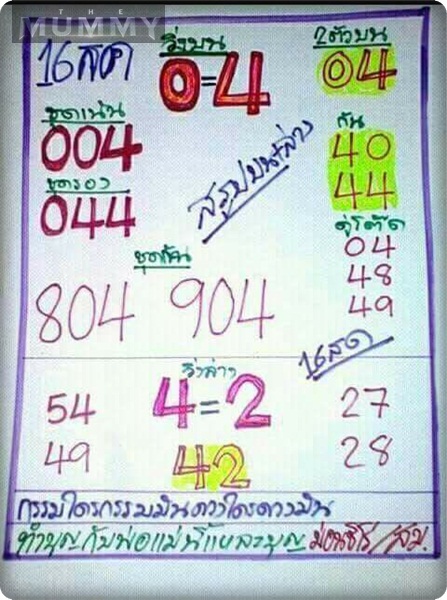 THE
MUMMY
16 สค วิ่งบน 2ตัวบน
0=4 04
ชุดเน้น กัน
004 40
ชุดรอง 44
044 สรุปบน+ล่าง คู่โต๊ด
04
ชุดกัน 48
804 904 49
วิ่งล่าง 16 สค
54 4=2 27
49 42 28
กรรมใครกรรมมันดวงใครดวงมัน
ทำบุญกับพ่อแม่นี่แหละบุญ